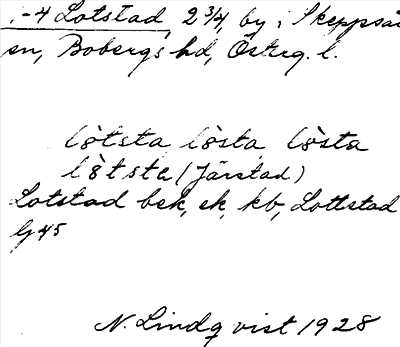 1-4 Lotstad, 2 3/4, by i Skeppsås
sn, Bobergs hd, Österg. l.
lòtsta lòsta, lòsta
lòtsta (Järstad)
Lotstad bek, ek, kb, Lottstad
G 45
N. Lindqvist 1928